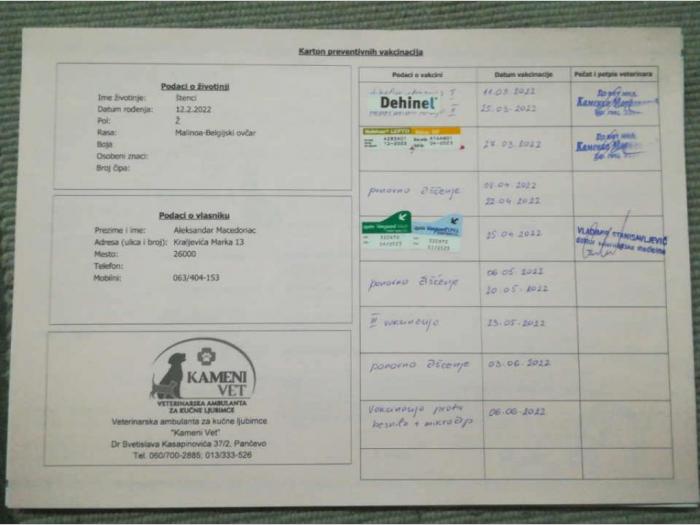 Karton preventivnih vakcinacija
Podaci o životinji
Ime životinje: štenci
Datum rođenja: 12.2.2022
Pol: Ž
Rasa: Malinoa-Belgijski ovčar
Boja
Osobeni znaci:
Broj čipa:
Podaci o vlasniku
Prezime i ime: Aleksandar Macedonac
Adresa (ulica i broj): Kraljevića Marka 13
Mesto: 26000
Telefon:
Mobilni: 063/404-153
KAMENI
VET
VETERINARSKA AMBULANTA
ZA KUĆNE LJUBIMCE
Veterinarska ambulanta za kućne ljubimce
"Kameni Vet"
Dr Svetislava Kasapinovića 37/2, Pančevo
Tel. 060/700-2885; 013/333-526
Podaci o vakcini Datum vakcinacije Pečat i potpis veterinara
Dehinel
11.03.2022
25.03.2022
LEPTO
12-2023 04-2023
27.03.2022
ponovno čišćenje
22.04.2022
Vanguard
25.04.2022
VLADIMIR STANISAVLJEVIĆ
doktor veterinarske medicine
ponovno čišćenje 06.05.2022
20.05.2022
III vakcinacija 23.05.2022
ponovno čišćenje 03.06.2022
Vakcinacija protiv 06.06.2022
besnila + mikročip